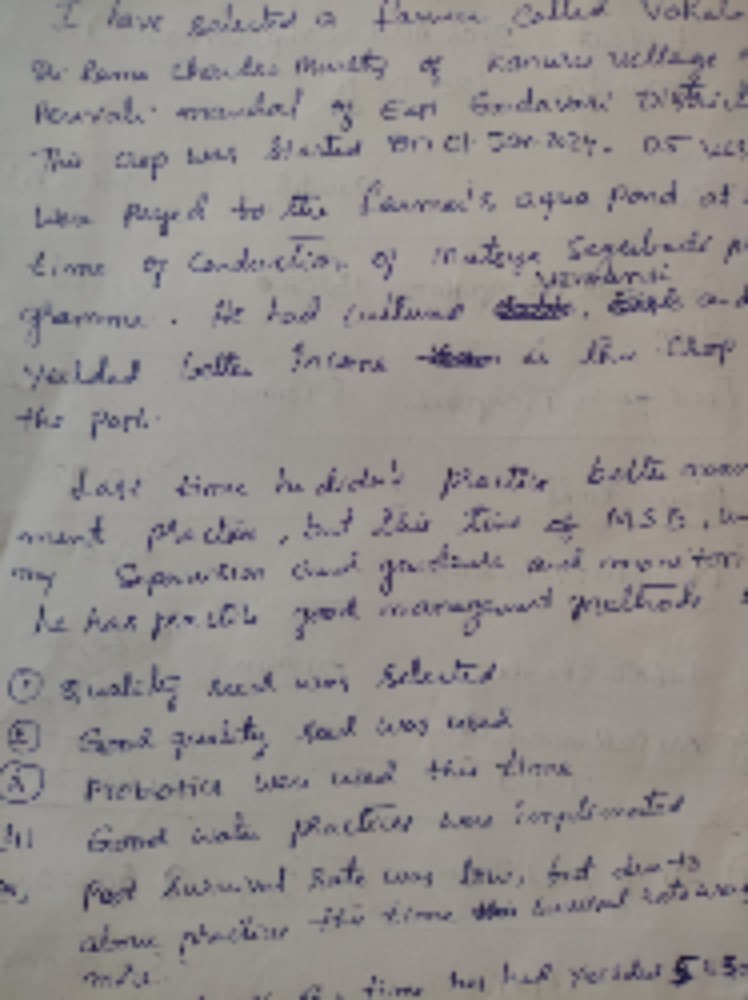 I have selected a farmer called Vokala
Sri Rama Chandra Murthy of Kanuru village
Peravali mandal of East Godavari District
This crop was started on 01-Jan-2024. 05
was payed to the farmer's aqua pond at
time of Conduction of Matsya Sagubadi
gramme. He had cultured vannamei and
yeilded better Income in this Crop
the past.
Last time he didn't practice better
ment practice, but this time of M.S.B,
my Supervision and guidance and monitori
he has good management methods
① Quality seed was selected
② Good quality feed was used
③ Probiotics was used this time
Good water practices was implimented
Past Survival rate was low, but due to
above practice this time survival rate was
more.
time he had yeilded